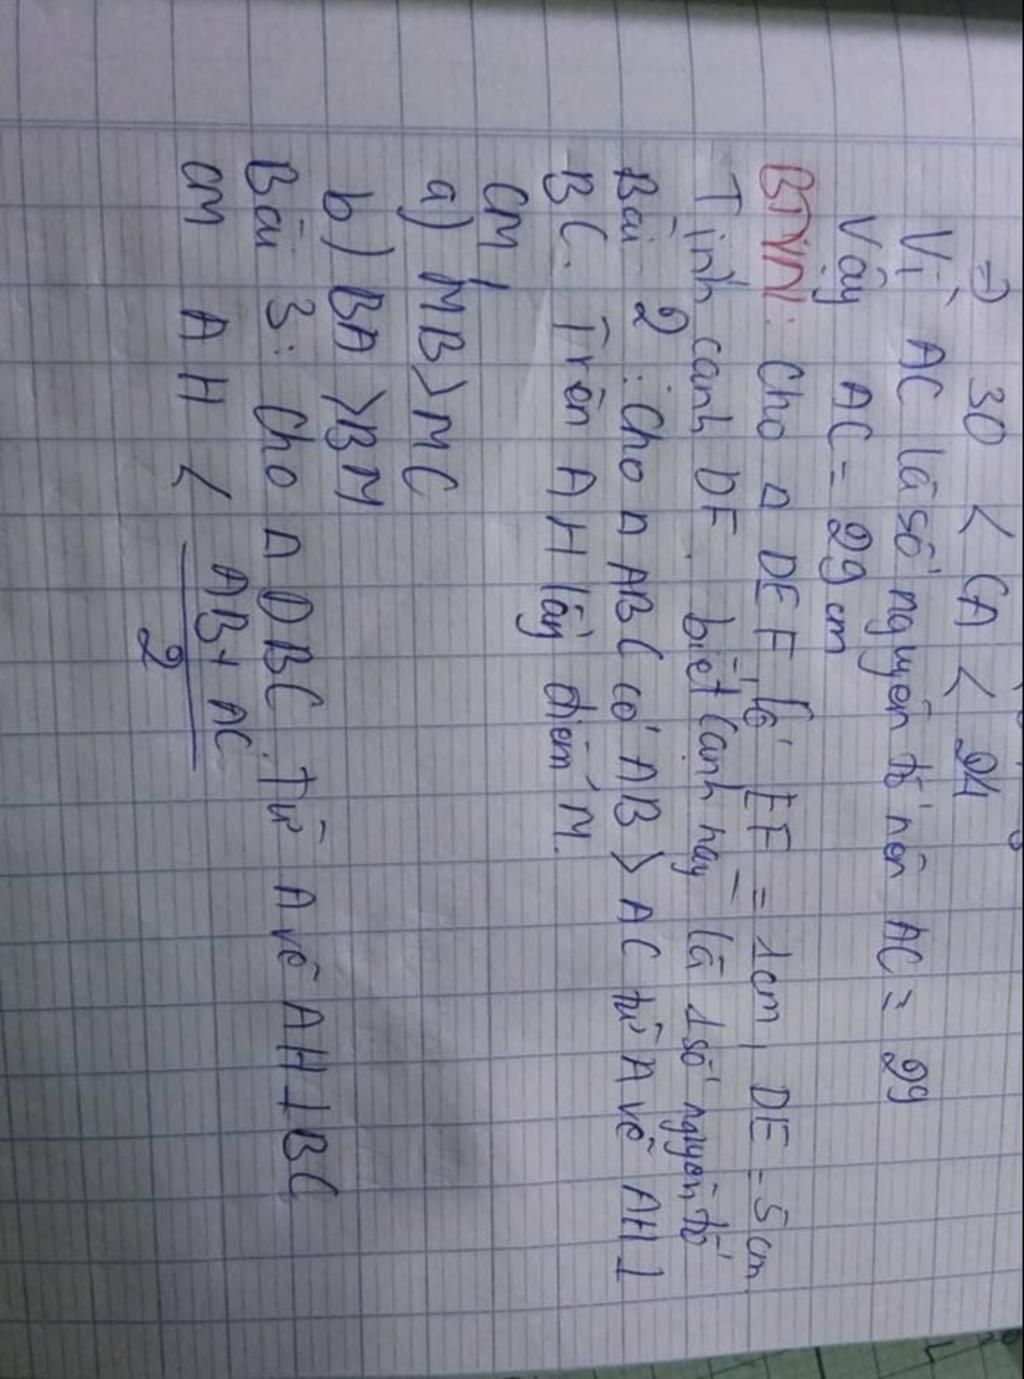 => 30 < CA < 24
Vì AC là số nguyên tố nên AC = 29
Vậy AC = 29 cm
BTVN: Cho Δ DEF có EF = 1cm, DE = 5cm
Tính cạnh DF. biết cạnh này là 1 số nguyên tố
Bài 2: Cho Δ ABC có AB > AC từ A vẽ AH ⊥
BC. Trên AH lấy điểm M.
CM
a) MB > MC
b) BA > BM
Bài 3: Cho Δ DBC. Từ A vẽ AH ⊥ BC
CM AH < AB + AC
2